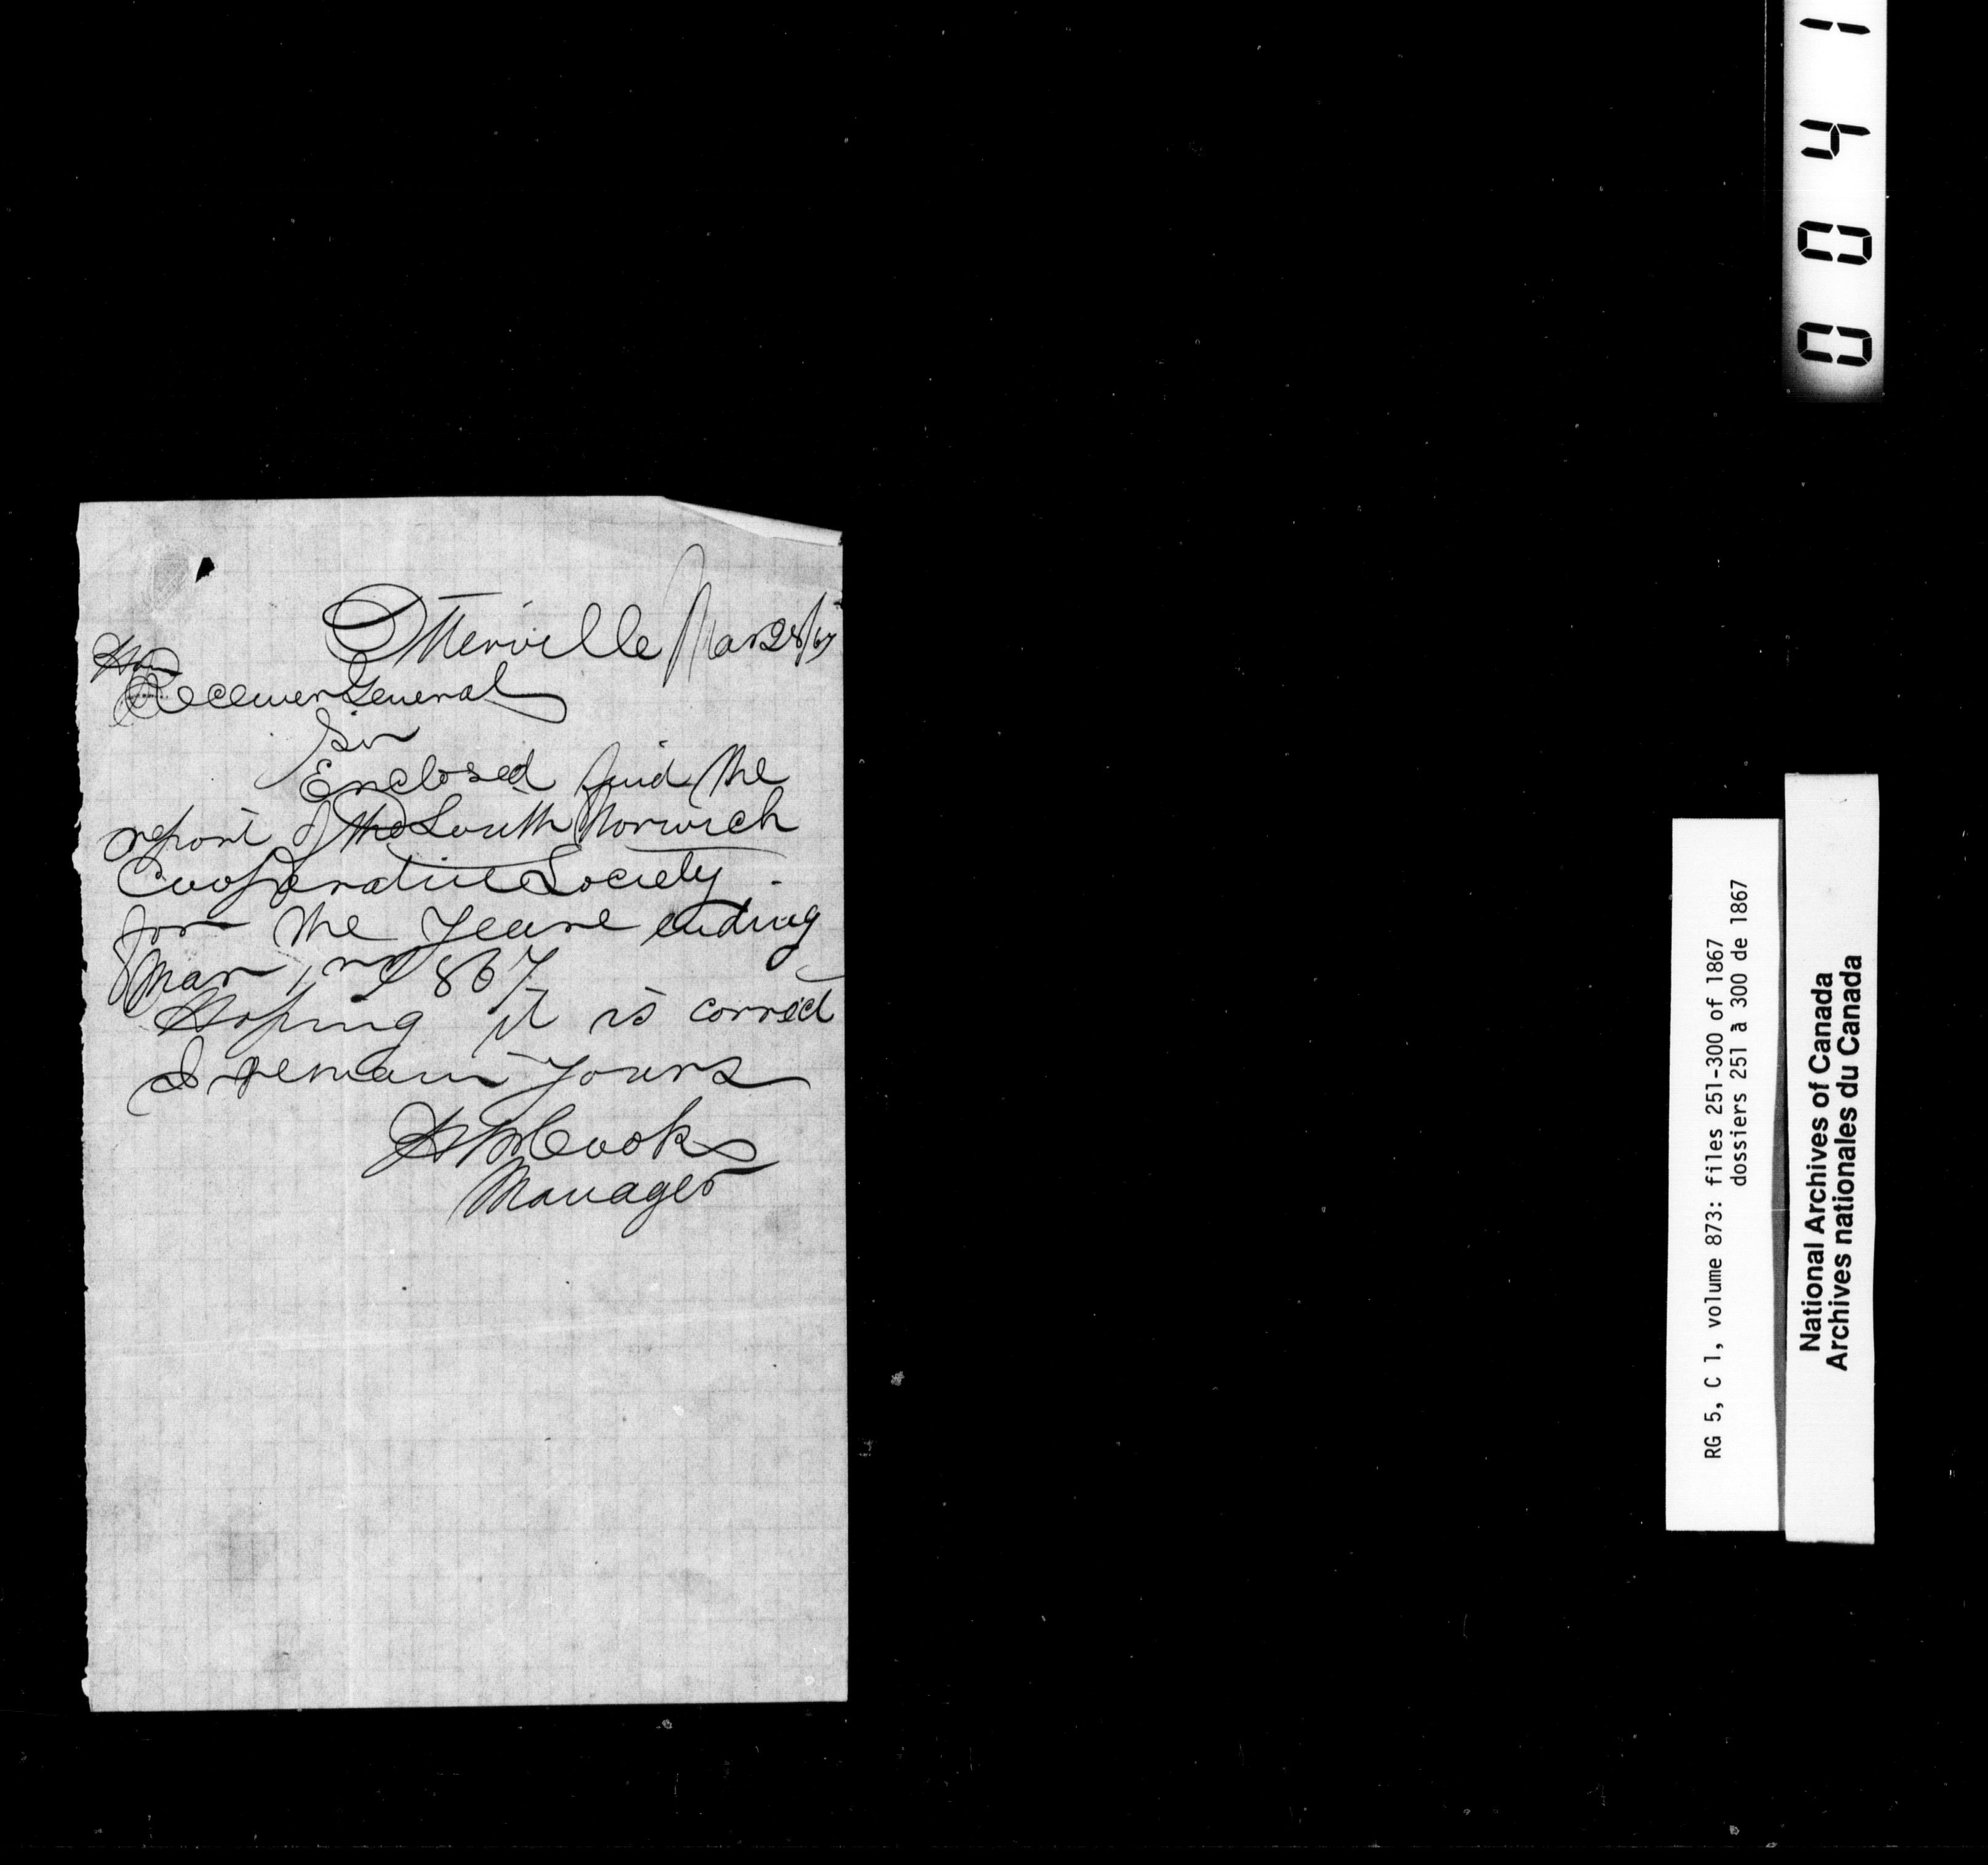 Otterville Mar 28/67
Hon
Receiver General
Sir
Enclosed find the
report of the South Norwich
Cooperative Society
for the Yeare ending
Mar 1, 1867
Hoping it is correct
I remain Yours
Cook
Manager
0041
RG 5, C 1, volume 873: files 251-300 of 1867
dossiers 251 à 300 de 1867
National Archives of Canada
Archives nationales du Canada